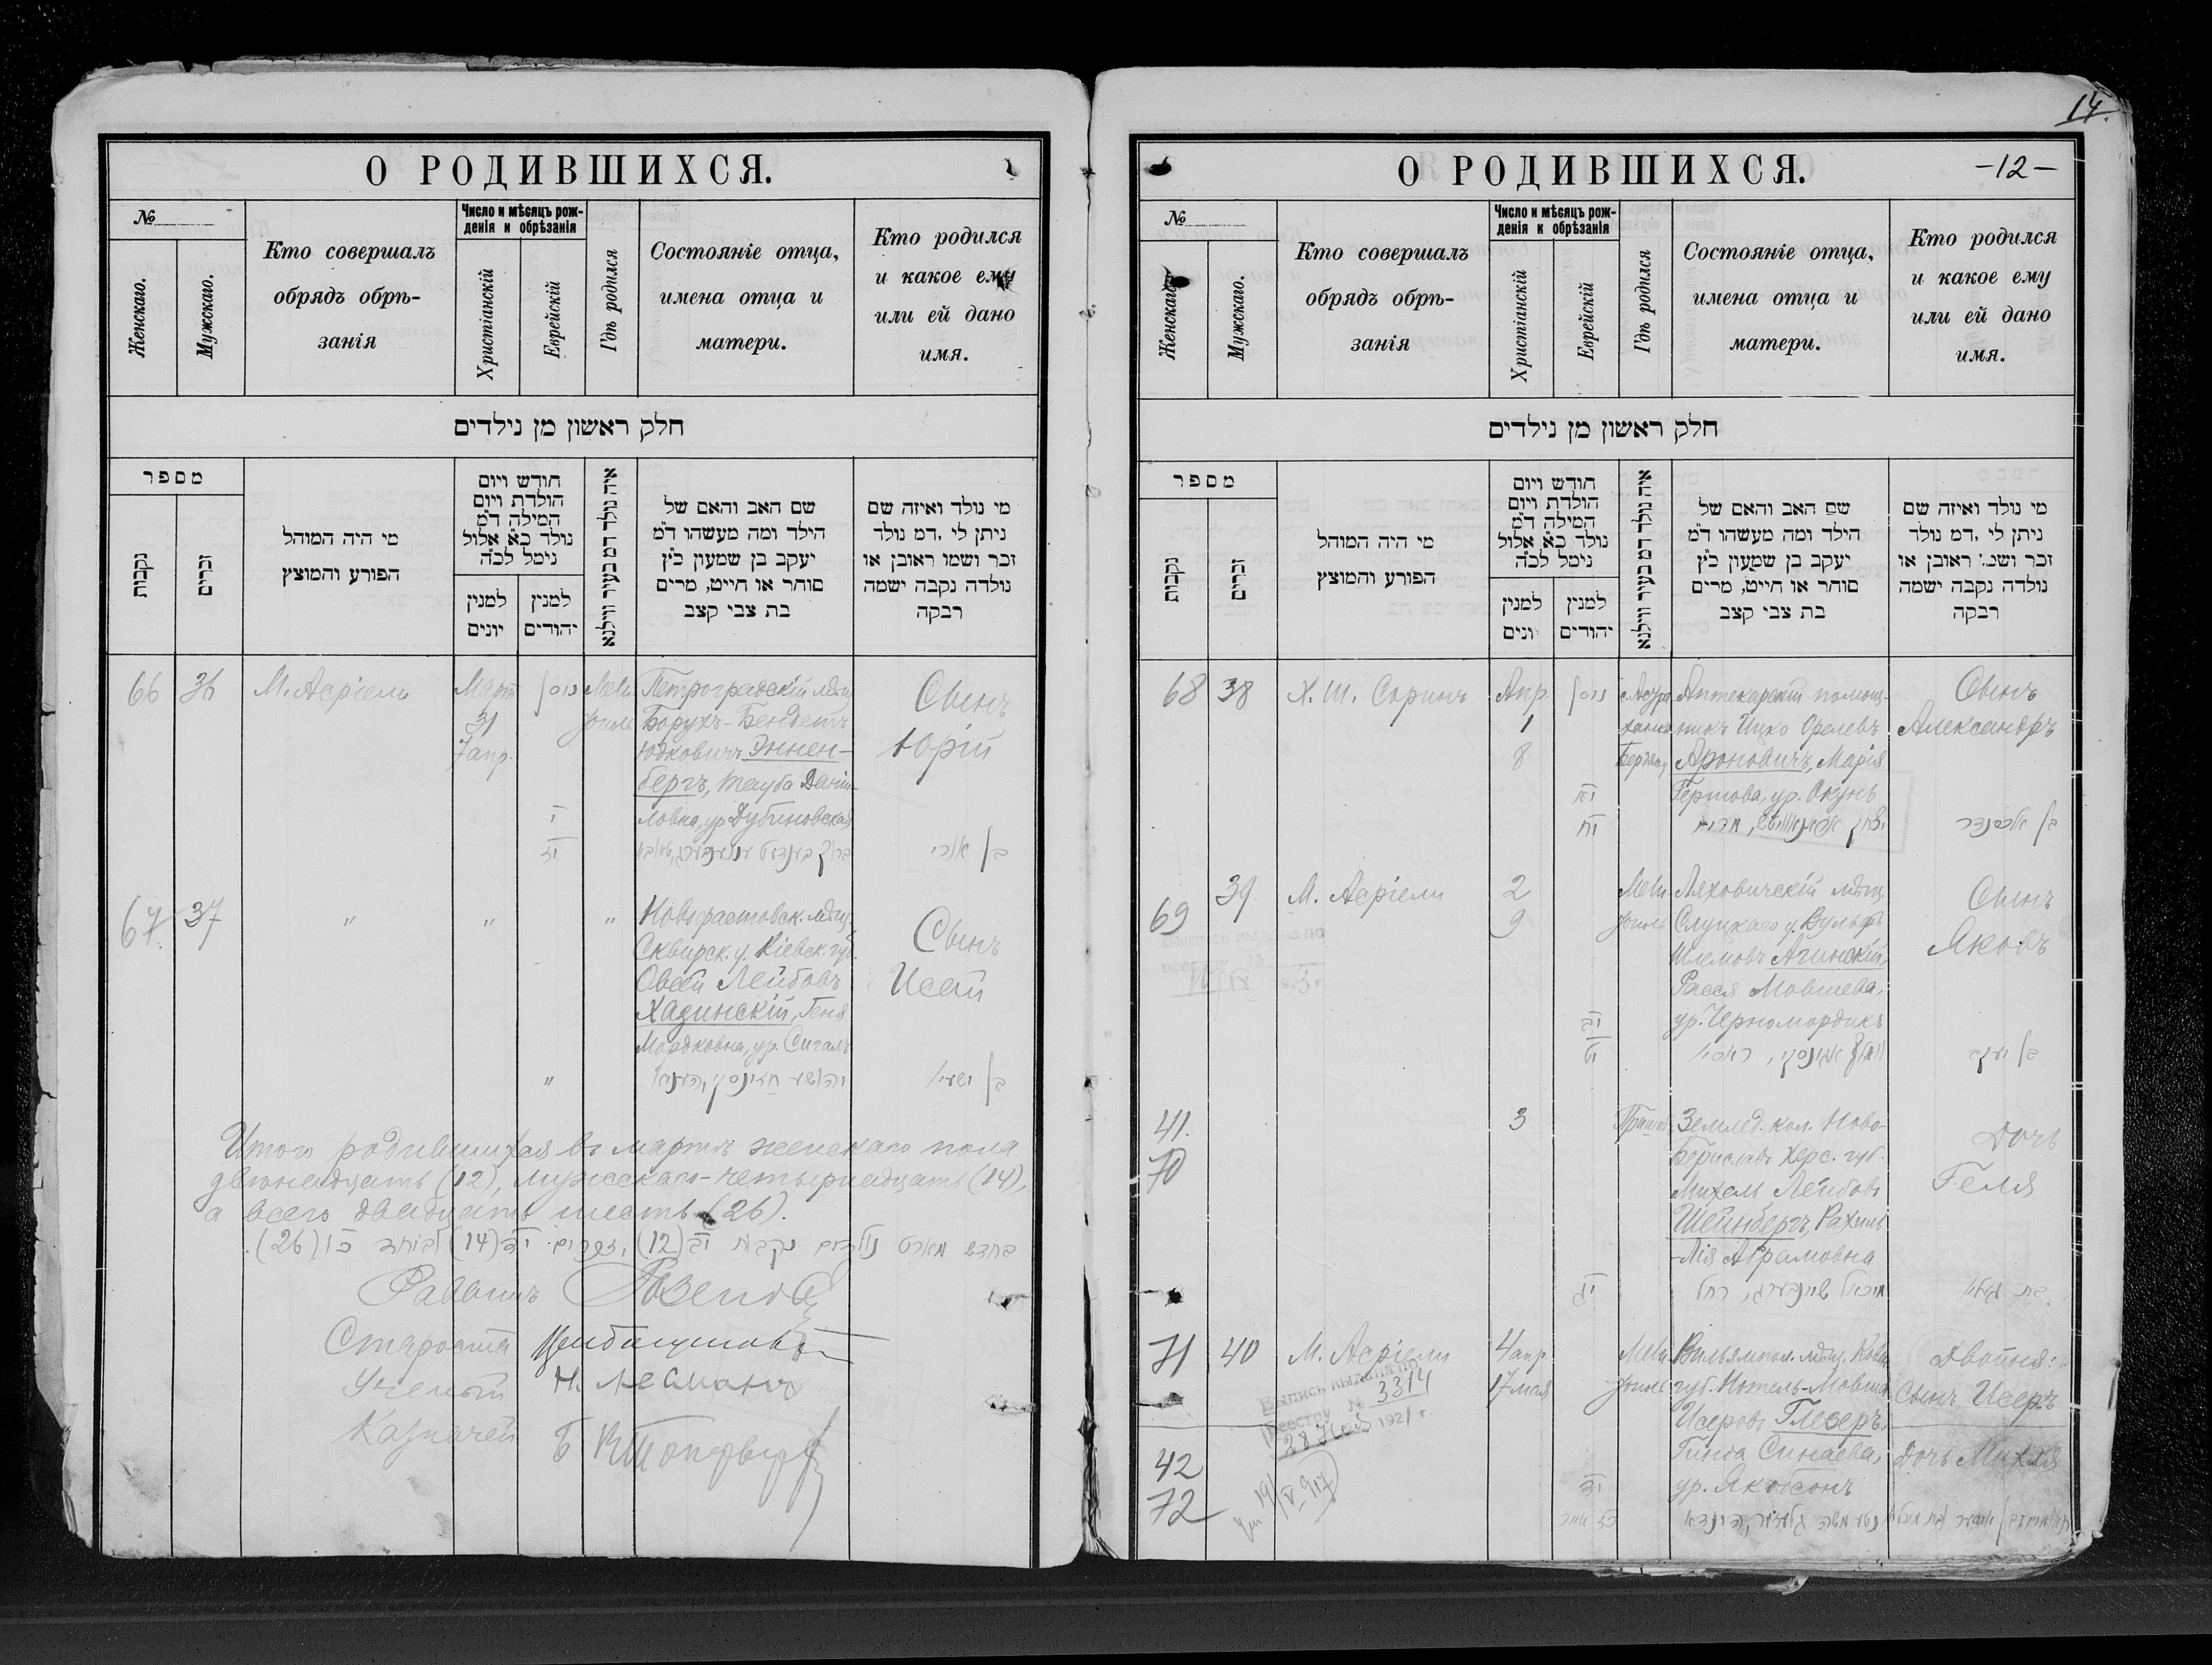 14.
О РОДИВШИХСЯ.
№
Женскаго.
Мужскаго.
Кто совершалъ
обрядъ обрѣ-
занія
Число и мѣсяцъ рож-
денія и обрѣзанія
Христіанскій
Еврейскій
Годъ родился
Состояніе отца,
имена отца и
матери.
Кто родился
и какое ему
или ей дано
имя.
חלק ראשון מן נילדים
מספר
נקבות
זכרים
מי היה המוהל
הפורע והמוצץ
חודש ויום
הולדת ויום
המילה ד״מ
נולד כ״א אלול
נימל לכ״ה
למנין
יונים
למנין
יהודים
איה נולד דמ בעיר ווילנא
שם האב והאם של
הילד ומה מעשהו ד״מ
יעקב בן שמעון כ״ץ
סוחר או חייט, מרים
בת צבי קצב
מי נולד ואיזה שם
ניתן לי, דמ נולד
זכר ושמו ראובן או
נולדה נקבה ישמה
רבקה
66
36
М. Асріели
Март
31
7 апр.
ניסן
Мели-
тополь
Петроградскій мѣщ.
Борухъ-Бендетъ
Юдковичъ Эннен-
бергъ, Тауба Даніи-
ловна, ур. Дубиновская
Сынъ
Юрій
י
יז
בן אורי
67
37
"
"
"
Сквирск. у. Кіевск. губ.
Овсей Лейбовъ
Хазинскій, Геня
Мордковна, ур. Сигалъ
Сынъ
Исай
"
יהושע חאזינסקי, העניא
בן ישעי׳
Итого родившихся въ мартѣ женскаго пола
двѣнадцать (12), мужскаго - четырнадцать (14),
а всего двадцать шесть (26).
בחדש מארט נולדים נקבות יב (12) וזכרים יד (14) ביחד כו (26).
Раввинъ
Староста
Ученый
Казначей
О РОДИВШИХСЯ.
-12-
№
Женскаго.
Мужскаго.
Кто совершалъ
обрядъ обрѣ-
занія
Число и мѣсяцъ рож-
денія и обрѣзанія
Христіанскій
Еврейскій
Годъ родился
Состояніе отца,
имена отца и
матери.
Кто родился
и какое ему
или ей дано
имя.
חלק ראשון מן נילדים
מספר
נקבות
זכרים
מי היה המוהל
הפורע והמוצץ
חודש ויום
הולדת ויום
המילה ד״מ
נולד כ״א אלול
נימל לכ״ה
למנין
יונים
למנין
יהודים
איה נולד דמ בעיר ווילנא
שם האב והאם של
הילד ומה מעשהו ד״מ
יעקב בן שמעון כ״ץ
סוחר או חייט, מרים
בת צבי קצב
מי נולד ואיזה שם
ניתן לי, דמ נולד
זכר ושמ׳ ראובן או
נולדה נקבה ישמה
רבקה
68
38
Х. Ш. Скринъ
Апр.
1
8
ניסן
Аптекарскій помощ-
никъ Ицко Орелевъ
Ароновичъ, Марія
Гершова, ур. Окунь
Сынъ
Александръ
יא
יח
בן אלכסנדר
69
39
М. Асріели
2
9
Мели-
тополь
Ляховичскій мѣщ.
Слуцкаго у. Вульфъ
Шлемовъ Агинскій
Рася Мовшева,
ур. Черномордикъ
Сынъ
Яковъ
יב
יט
בן יעקב
41.
70
3
Землед. кол. Ново-
Бериславъ Херс. губ.
Михель Лейбовъ
Шейнбергъ, Рахиль
-Лія Абрамовна
Дочь
Геля
יג
מיכאל שיינבערג, רחל
71
40
М. Асріели
4 апр.
17 мая
Мели-
тополь
Вильямпол. мѣщ. Ковен.
губ. Нотель-Мовша
Исеровъ Глезеръ,
Гинда Синаева,
ур. Якобсонъ
Двойня:
Сынъ Исеръ
Дочь Михля
42
72
יד
Выпись выдана по
реестру № 3314
28 Ноя 1921 г.